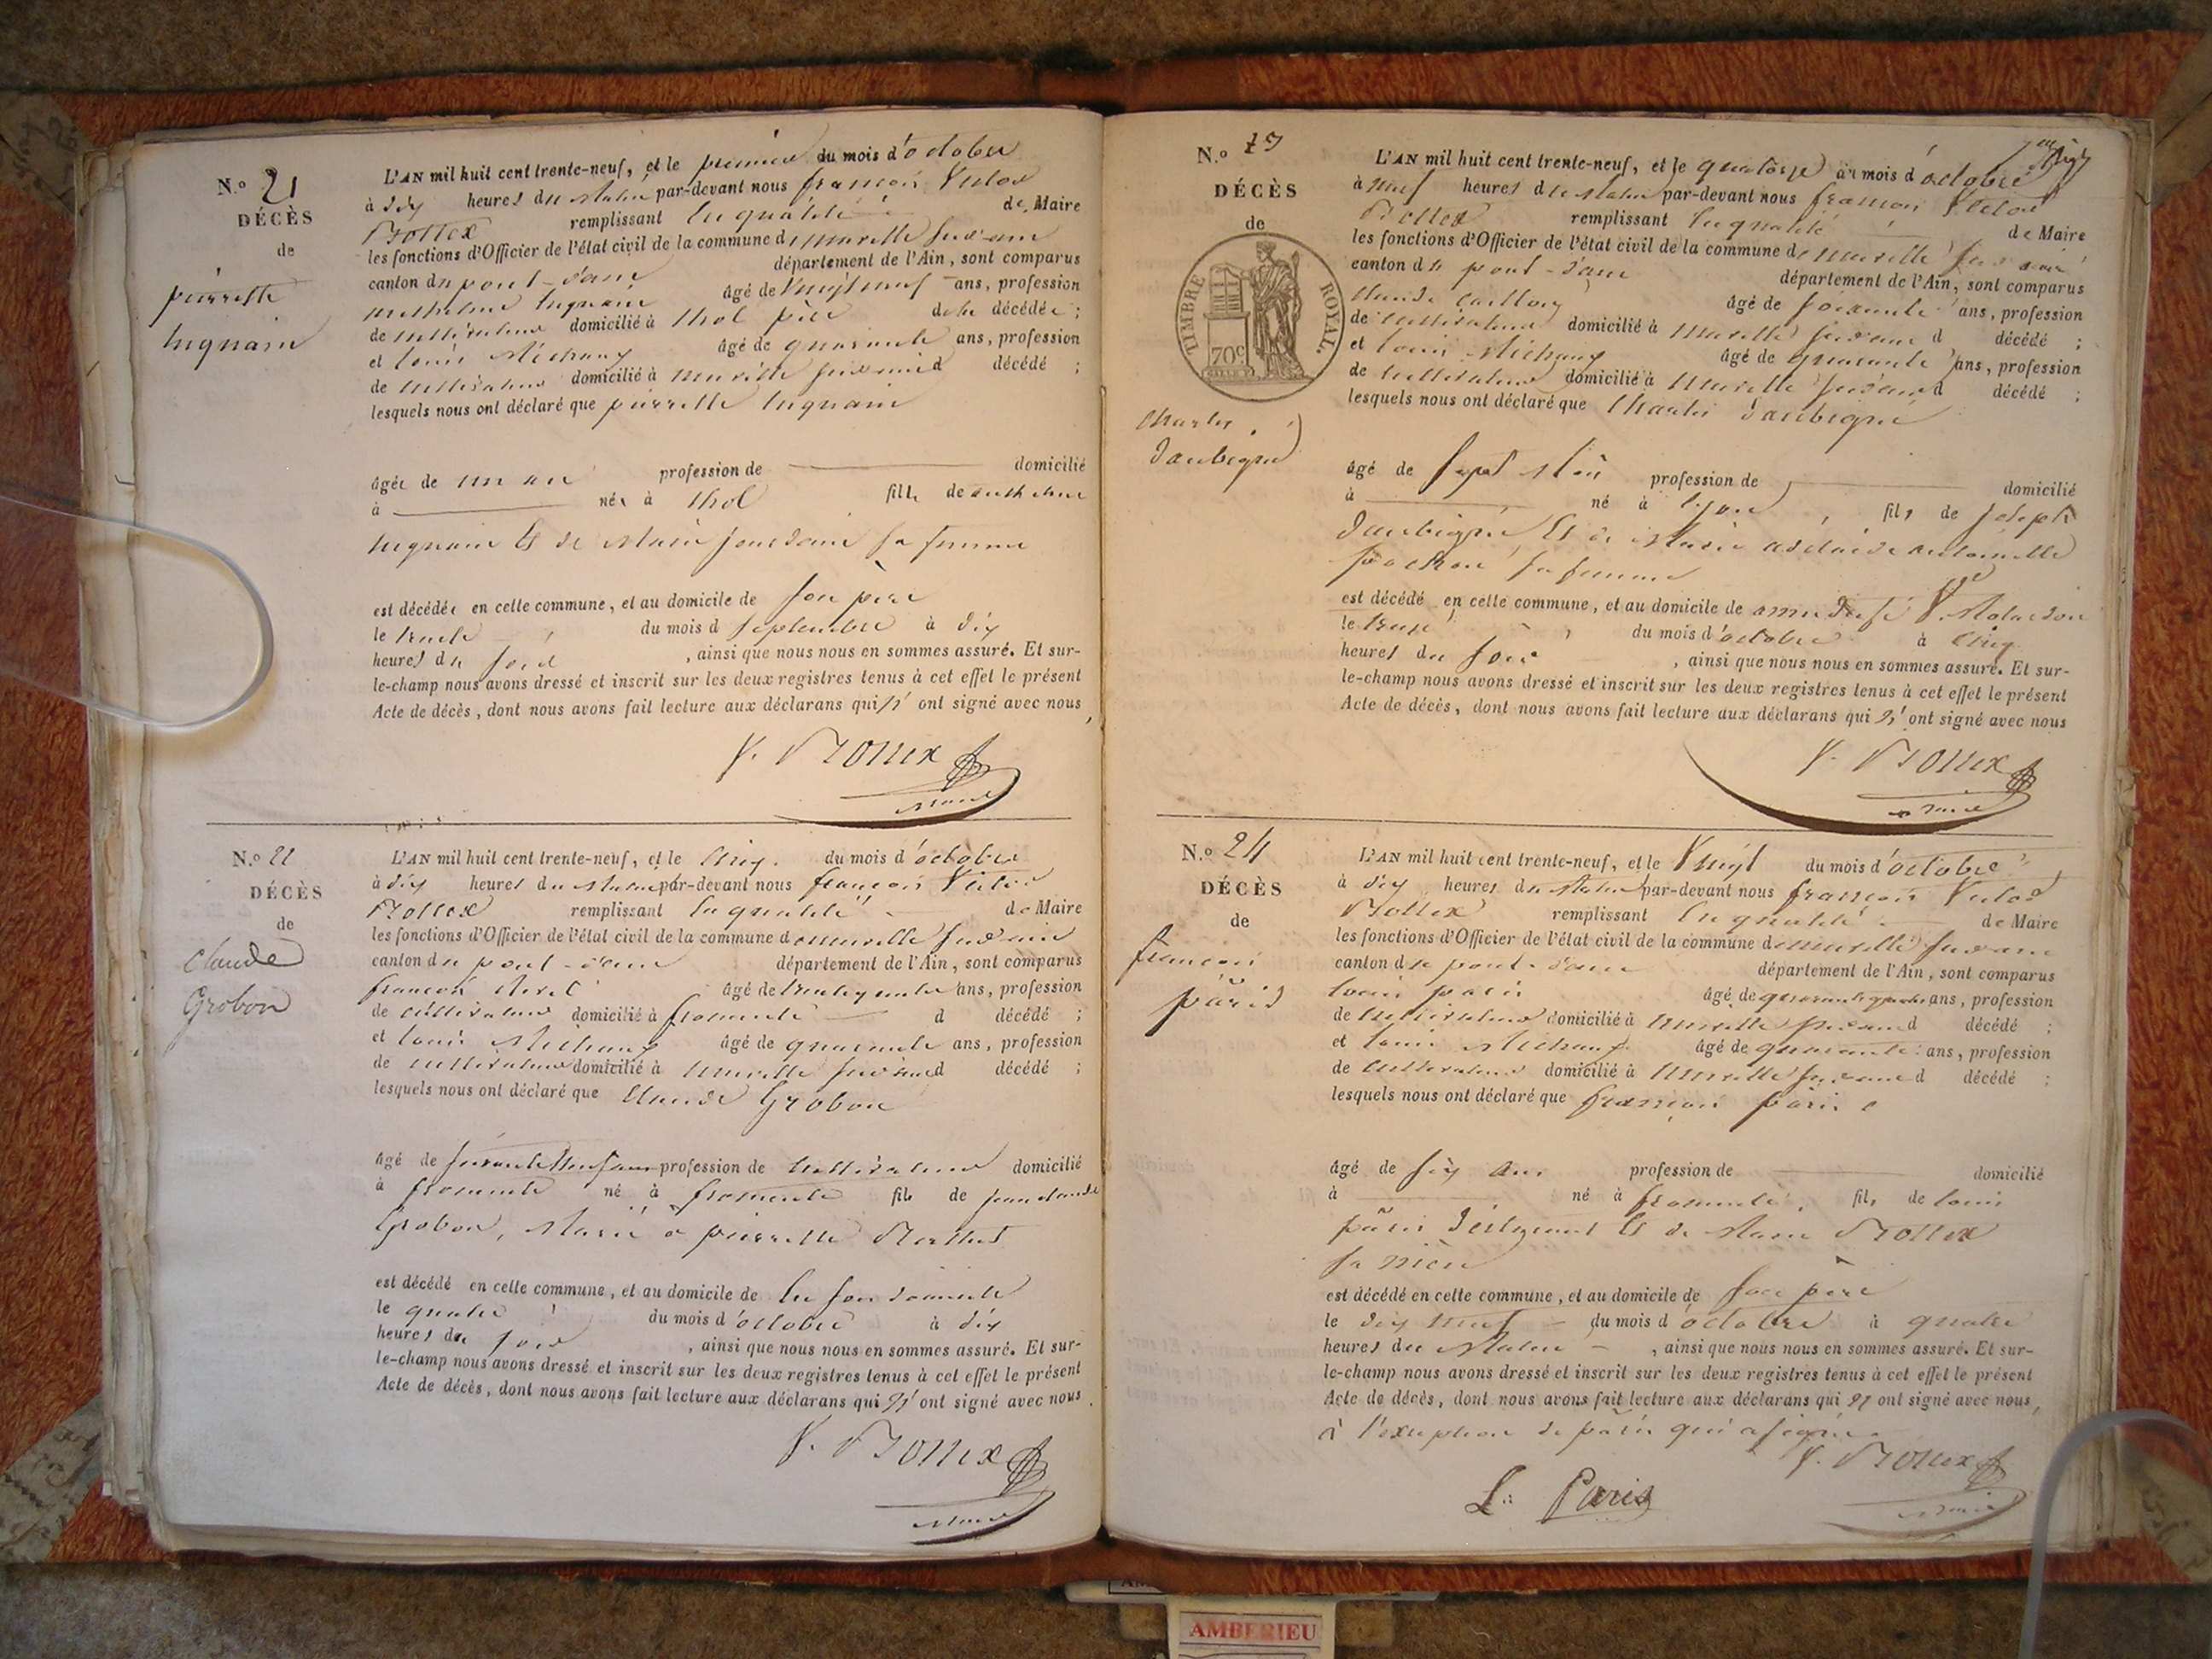 N.o 21
DÉCÈS
de
pierrette
L'AN mil huit cent trente-neuf, et le premier du mois d'octobre
à dix heures du matin par-devant nous françois Victor
Bottex remplissant la qualité de Maire
les fonctions d'Officier de l'état civil de la commune de neuville sur ain
canton du pont-d'ain département de l'Ain, sont comparus
âgé de vingt neuf ans, profession
de cultivateur domicilié à thol père de la décédée ;
et louis Michaux âgé de quarante ans, profession
de cultivateur domicilié à neuville sur ain d décédé ;
lesquels nous ont déclaré que pierrette
âgée de un an profession de domicilié
à née à thol fille de
et de Marie jourdain sa femme
est décédée en cette commune, et au domicile de son père
le trente du mois d septembre à dix
heures du soir , ainsi que nous nous en sommes assuré. Et sur-
le-champ nous avons dressé et inscrit sur les deux registres tenus à cet effet le présent
Acte de décès, dont nous avons fait lecture aux déclarans qui n'ont signé avec nous
V. Bottex
maire
N.o 22
DÉCÈS
de
claude
Grobon
L'AN mil huit cent trente-neuf, et le cinq du mois d'octobre
à dix heures du matin par-devant nous françois Victor
Bottex remplissant la qualité de Maire
les fonctions d'Officier de l'état civil de la commune de neuville sur ain
canton du pont-d'ain département de l'Ain, sont comparus
françois âgé de ans, profession
de cultivateur domicilié à fromente d décédé ;
et louis Michaux âgé de quarante ans, profession
de cultivateur domicilié à neuville sur ain d décédé ;
lesquels nous ont déclaré que Claude Grobon
âgé de profession de cultivateur domicilié
à fromente né à fromente fils de jean claude
Grobon, Marié à pierrette
est décédé en cette commune, et au domicile de
le quatre du mois d'octobre à dix
heures du soir , ainsi que nous nous en sommes assuré. Et sur-
le-champ nous avons dressé et inscrit sur les deux registres tenus à cet effet le présent
Acte de décès, dont nous avons fait lecture aux déclarans qui n'ont signé avec nous
V. Bottex
maire
N.o 23
DÉCÈS
de
TIMBRE ROYAL.
70c
Charles
Daubigné
L'AN mil huit cent trente-neuf, et le quatorze du mois d'octobre
à neuf heures du matin par-devant nous françois Victor
Bottex remplissant la qualité de Maire
les fonctions d'Officier de l'état civil de la commune de neuville sur ain
canton du pont-d'ain département de l'Ain, sont comparus
claude âgé de soixante ans, profession
de cultivateur domicilié à neuville sur ain d décédé ;
et louis Michaux âgé de quarante ans, profession
de cultivateur domicilié à neuville sur ain d décédé ;
lesquels nous ont déclaré que Charles Daubigné
âgé de sept mois profession de domicilié
à né à lyon , fils de joseph
Daubigné et de Marie adelaide antoinette
sa femme
est décédé en cette commune, et au domicile de
le treize du mois d'octobre à cinq
heures du soir , ainsi que nous nous en sommes assuré. Et sur-
le-champ nous avons dressé et inscrit sur les deux registres tenus à cet effet le présent
Acte de décès, dont nous avons fait lecture aux déclarans qui n'ont signé avec nous
V. Bottex
maire
N.o 24
DÉCÈS
de
françois
pâris
L'AN mil huit cent trente-neuf, et le vingt du mois d'octobre
à dix heures du matin par-devant nous françois Victor
Bottex remplissant la qualité de Maire
les fonctions d'Officier de l'état civil de la commune de neuville sur ain
canton du pont-d'ain département de l'Ain, sont comparus
louis paris âgé de quarante quatre ans, profession
de cultivateur domicilié à neuville sur ain d décédé ;
et louis Michaux âgé de quarante ans, profession
de cultivateur domicilié à neuville sur ain d décédé ;
lesquels nous ont déclaré que françois paris
âgé de six ans profession de domicilié
à né à fromente, fils de louis
pâris et de Marie Bottex
sa mère
est décédé en cette commune, et au domicile de son père
le dix neuf du mois d'octobre à quatre
heures du matin , ainsi que nous nous en sommes assuré. Et sur-
le-champ nous avons dressé et inscrit sur les deux registres tenus à cet effet le présent
Acte de décès, dont nous avons fait lecture aux déclarans qui n'ont signé avec nous,
à l'exception de pâris qui a signé
V. Bottex
L. Paris
maire
AMBERIEU